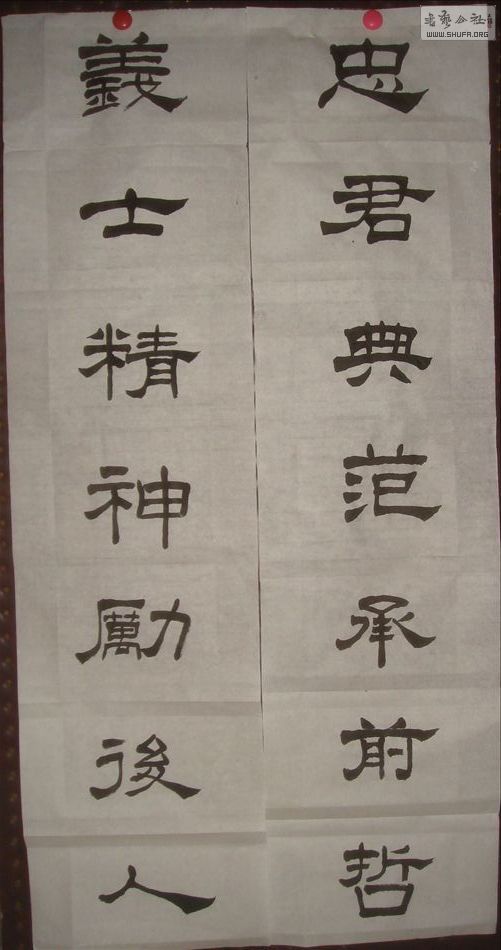 忠君典范承前哲
義士精神勵後人
書藝公社
WWW.SHUFA.ORG